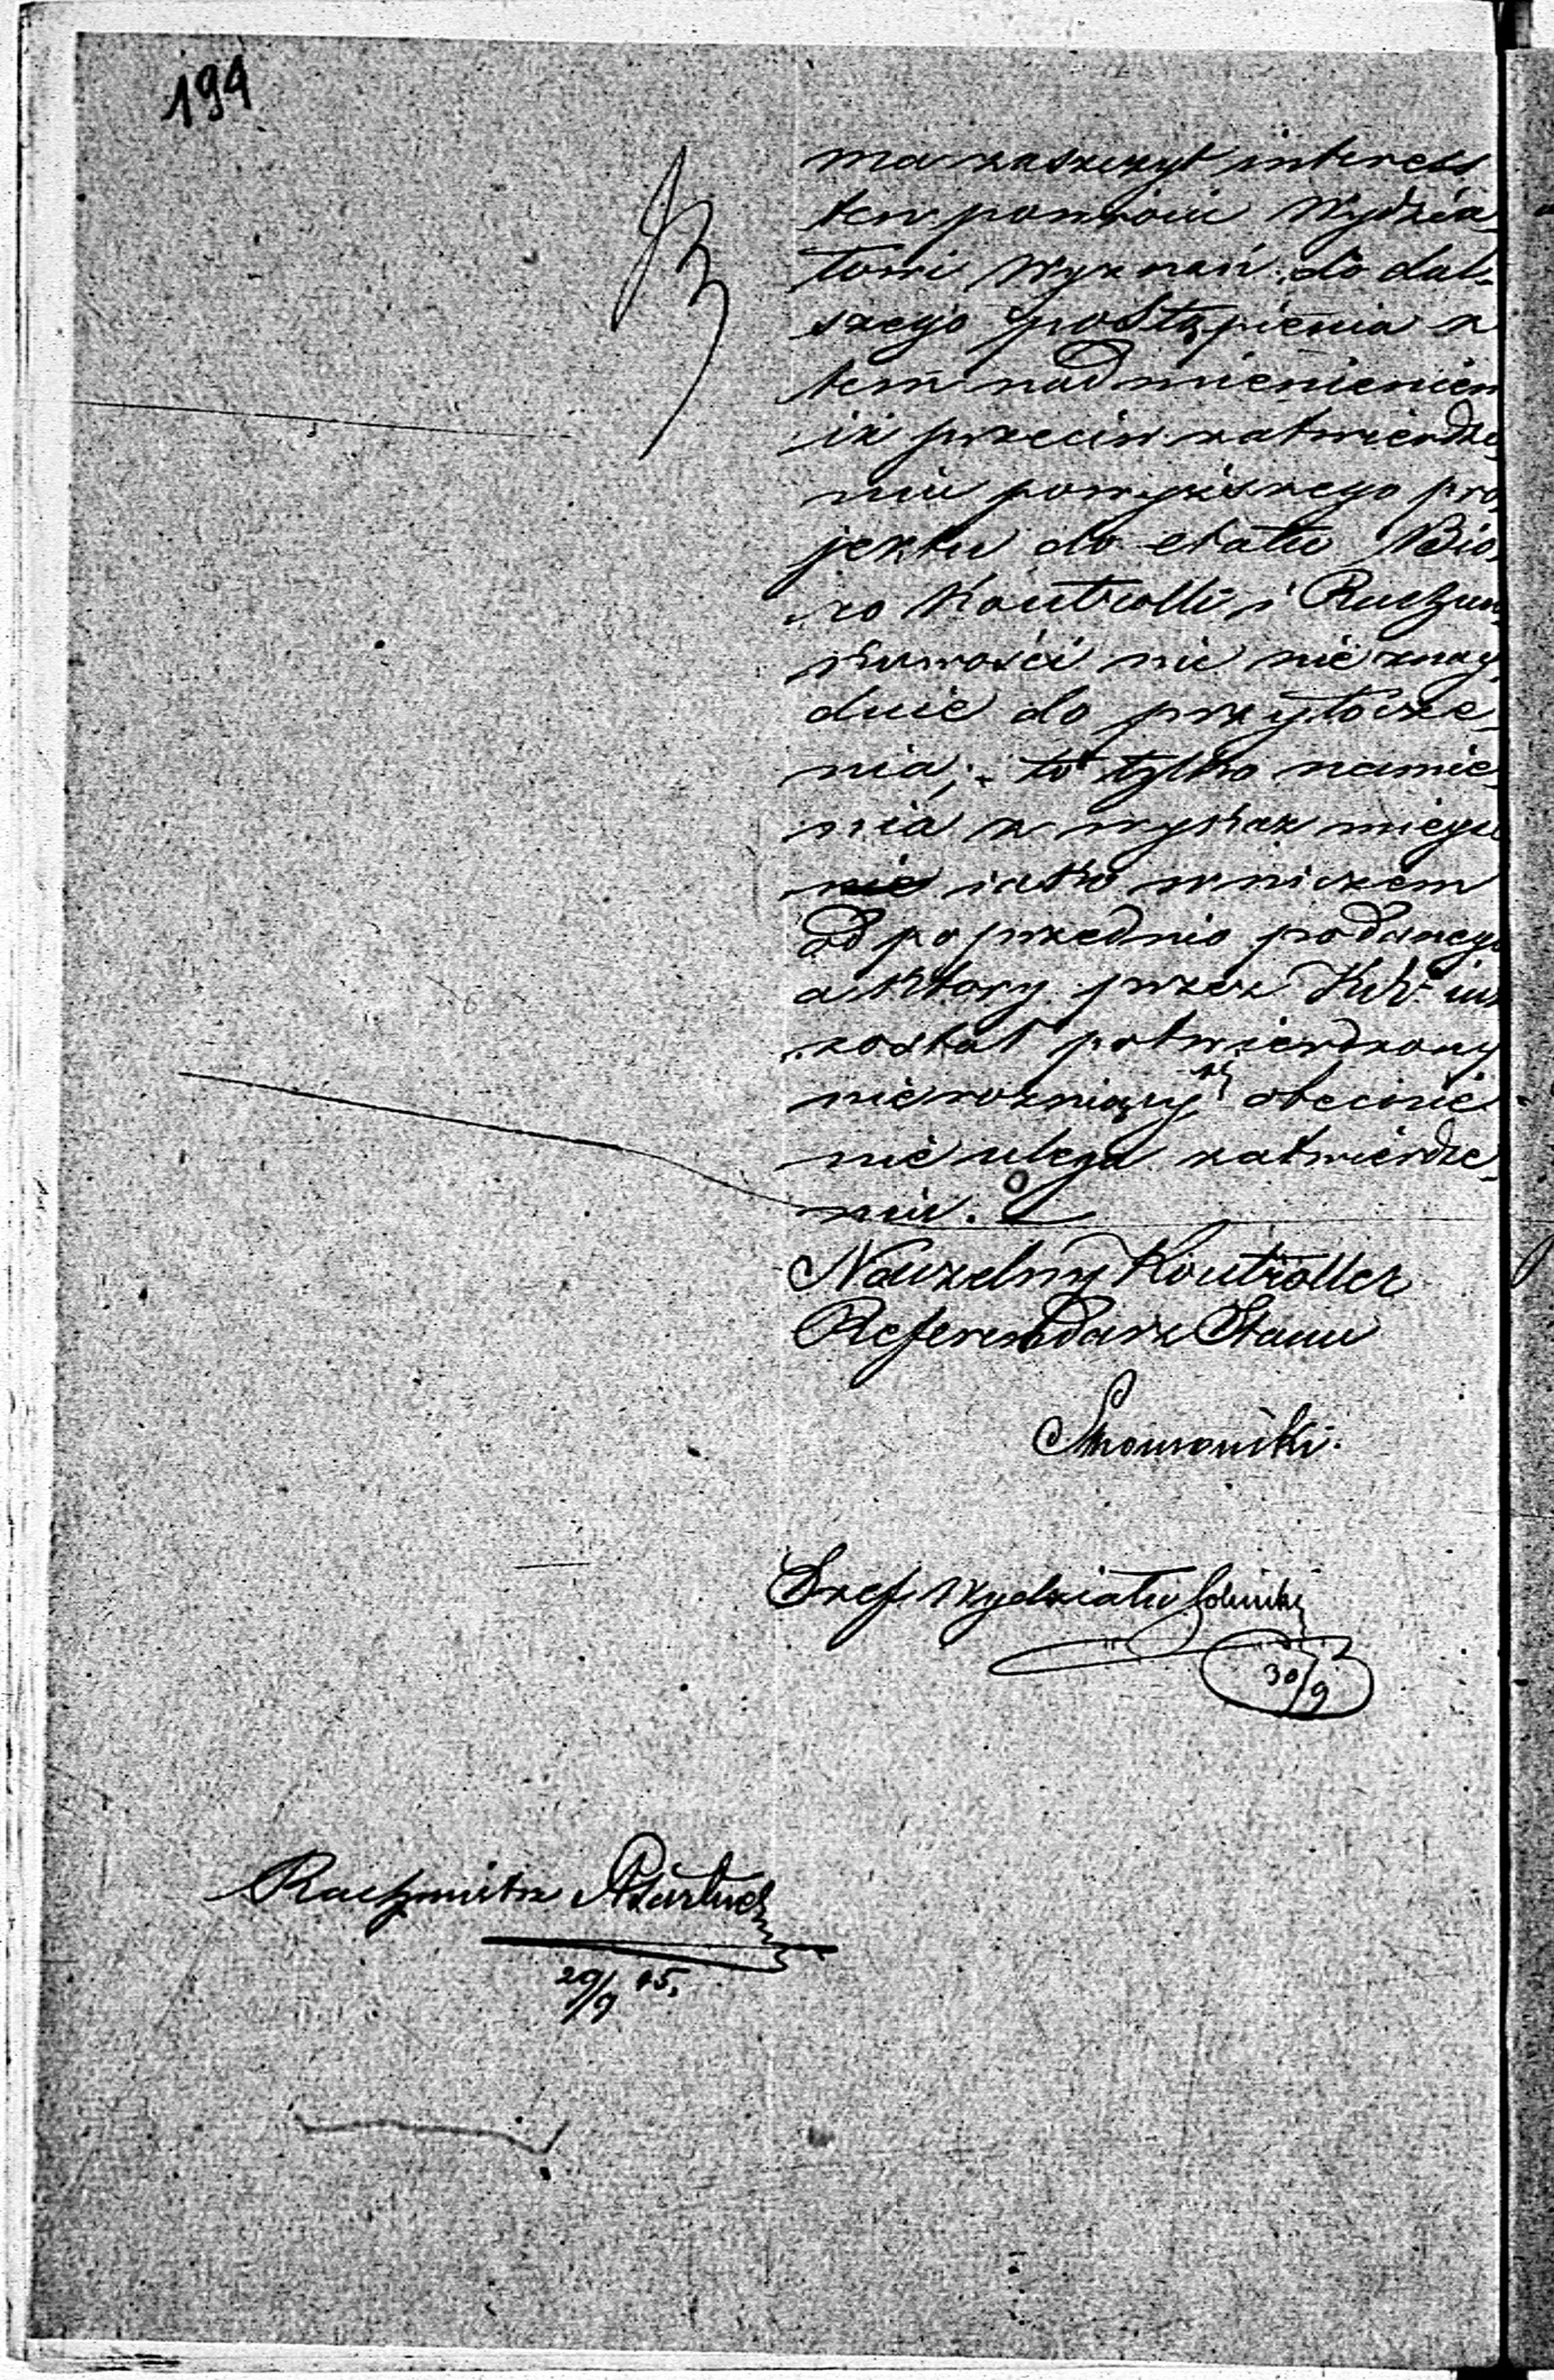 194
ma zaszczyt interess
ten pomówić Wydzia
łowi Wyznań do dal-
szego postąpienia z
tem nadmienieniem
iż przeciw zatwierdze
niu powyższego pro
jektu do etatu Bió
ro Kontrolli i Rachun
kowości nic nie znay
duie do przytocze
nia; to tylko namie
nia iako w niczem
od poprzednio podanego
a który przez iuż
został potwierdzony
nierożniący się obecnie
nie ulega zatwierdze
niu.
Naczelny Kontroller
Referendarz Stanu
Szef Wydziału
30/9
Rachmistrz
29/9 45.